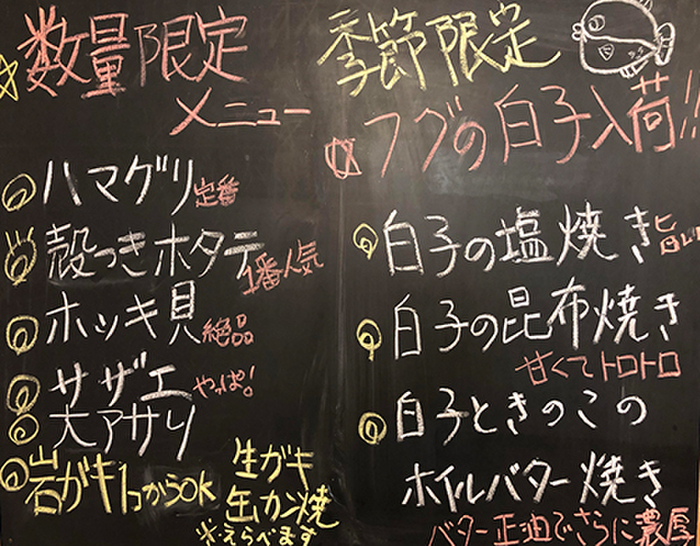 数量限定
メニュー
ハマグリ 定番
殻つきホタテ 1番人気
ホッキ貝 絶品
サザエ やっぱ!
大アサリ
岩ガキ1コからOK
生ガキ
缶カン焼
※えらべます
季節限定
フグの白子入荷!!
白子の塩焼き 旨い
白子の昆布焼き
甘くてトロトロ
白子ときのこの
ホイルバター焼き
バター正油でさらに濃厚